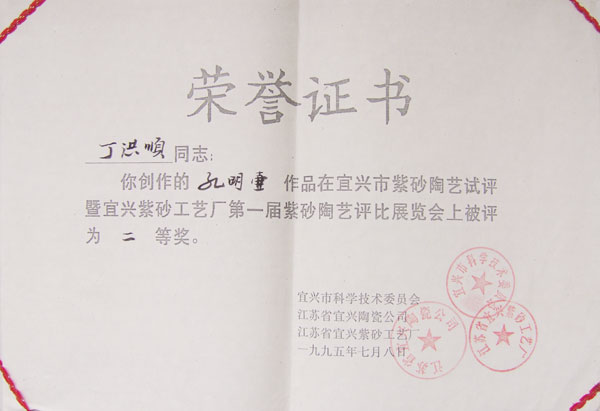 荣誉证书
丁洪顺同志:
你创作的 孔明壶 作品在宜兴市紫砂陶艺试评
暨宜兴紫砂工艺厂第一届紫砂陶艺评比展览会上被评
为 二 等奖。
宜兴市科学技术委员会
江苏省宜兴陶瓷公司
江苏省宜兴紫砂工艺厂
一九九五年七月八日
宜兴市科学技术委员会
江苏省宜兴陶瓷公司
江苏省宜兴紫砂工艺厂